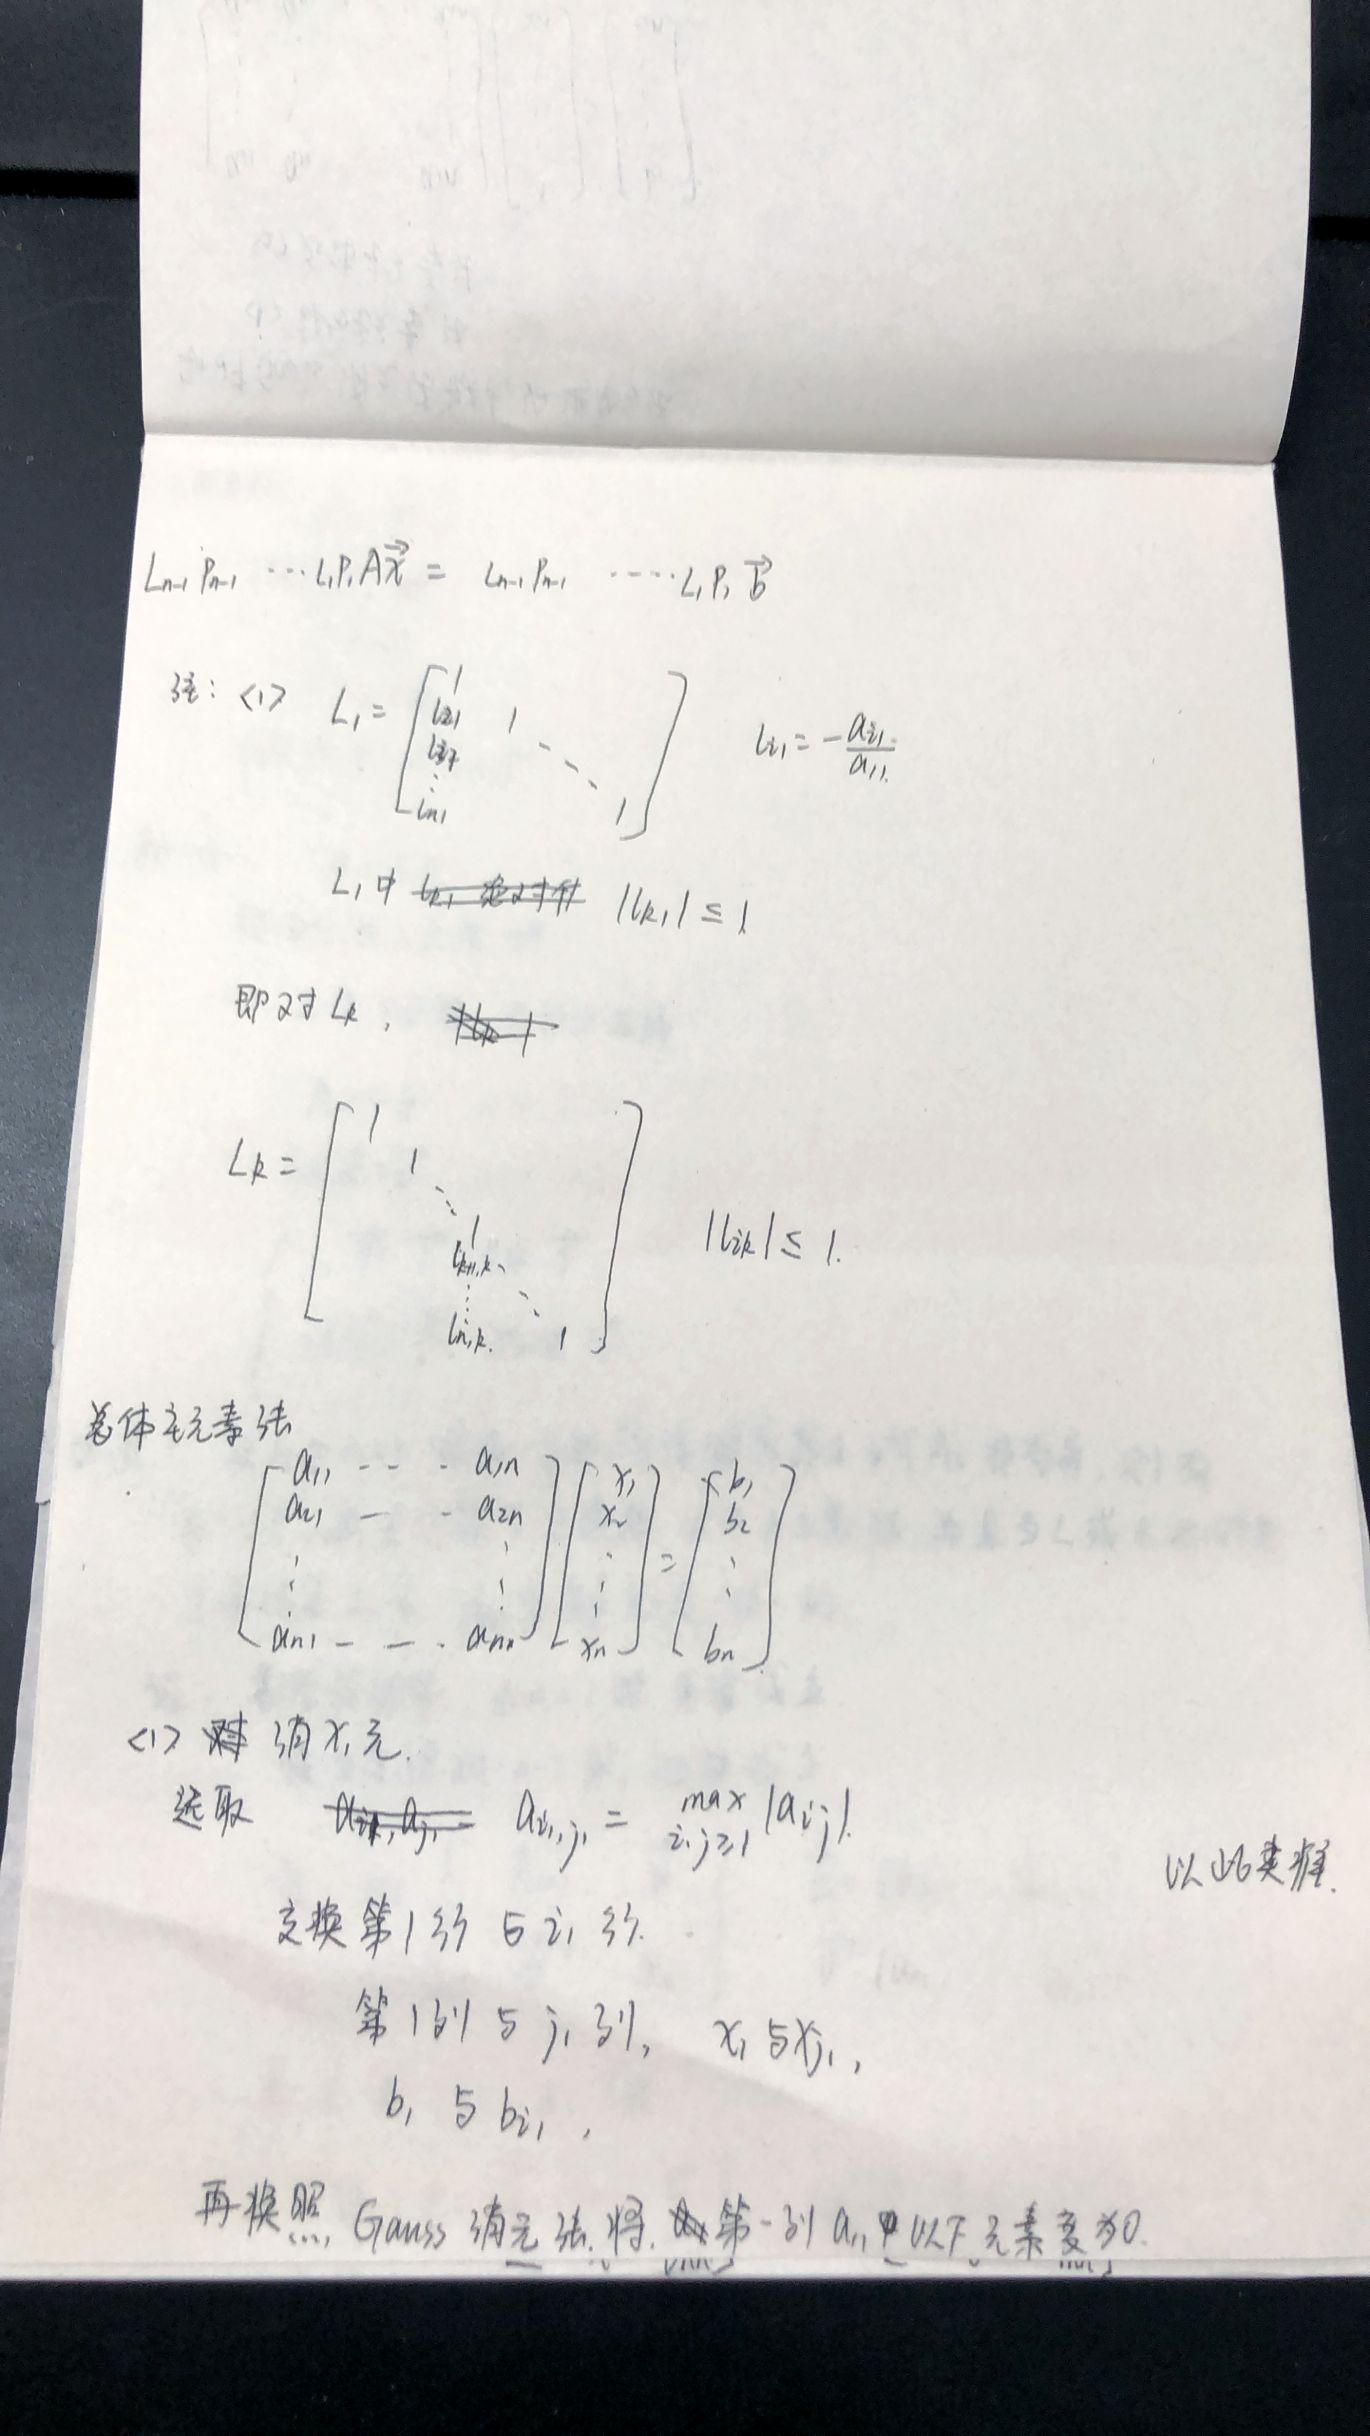 Lₙ₋₁Pₙ₋₁ ⋯ L₁P₁Ax⃗ = Lₙ₋₁Pₙ₋₁ ⋯⋯ L₁P₁b⃗
注: <1> L₁ = [1; l₂₁ 1; l₃₁ ⋱; ⋮; lₙ₁ 1] lᵢ₁ = -aᵢ₁/a₁₁
L₁中 |lₖ₁| ≤ 1.
即对Lₖ,
Lₖ = [1; 1; ⋱; 1; lₖ₊₁,ₖ ⋱; ⋮; lₙ,ₖ 1] |lᵢₖ| ≤ 1.
总体主元素法
[a₁₁ ⋯ a₁ₙ; a₂₁ ⋯ a₂ₙ; ⋮ ⋮; aₙ₁ ⋯ aₙₙ] [x₁; x₂; ⋮; xₙ] = [b₁; b₂; ⋮; bₙ]
<1> 消x₁元.
选取 a_{i₁,j₁} = max_{i,j≥1} |aᵢⱼ|.
以此类推.
交换第1行与i₁行.
第1列与j₁列, x₁与x_{j₁},
b₁与b_{i₁},
再按照Gauss消元法.将第一列a₁₁以下元素变为0.